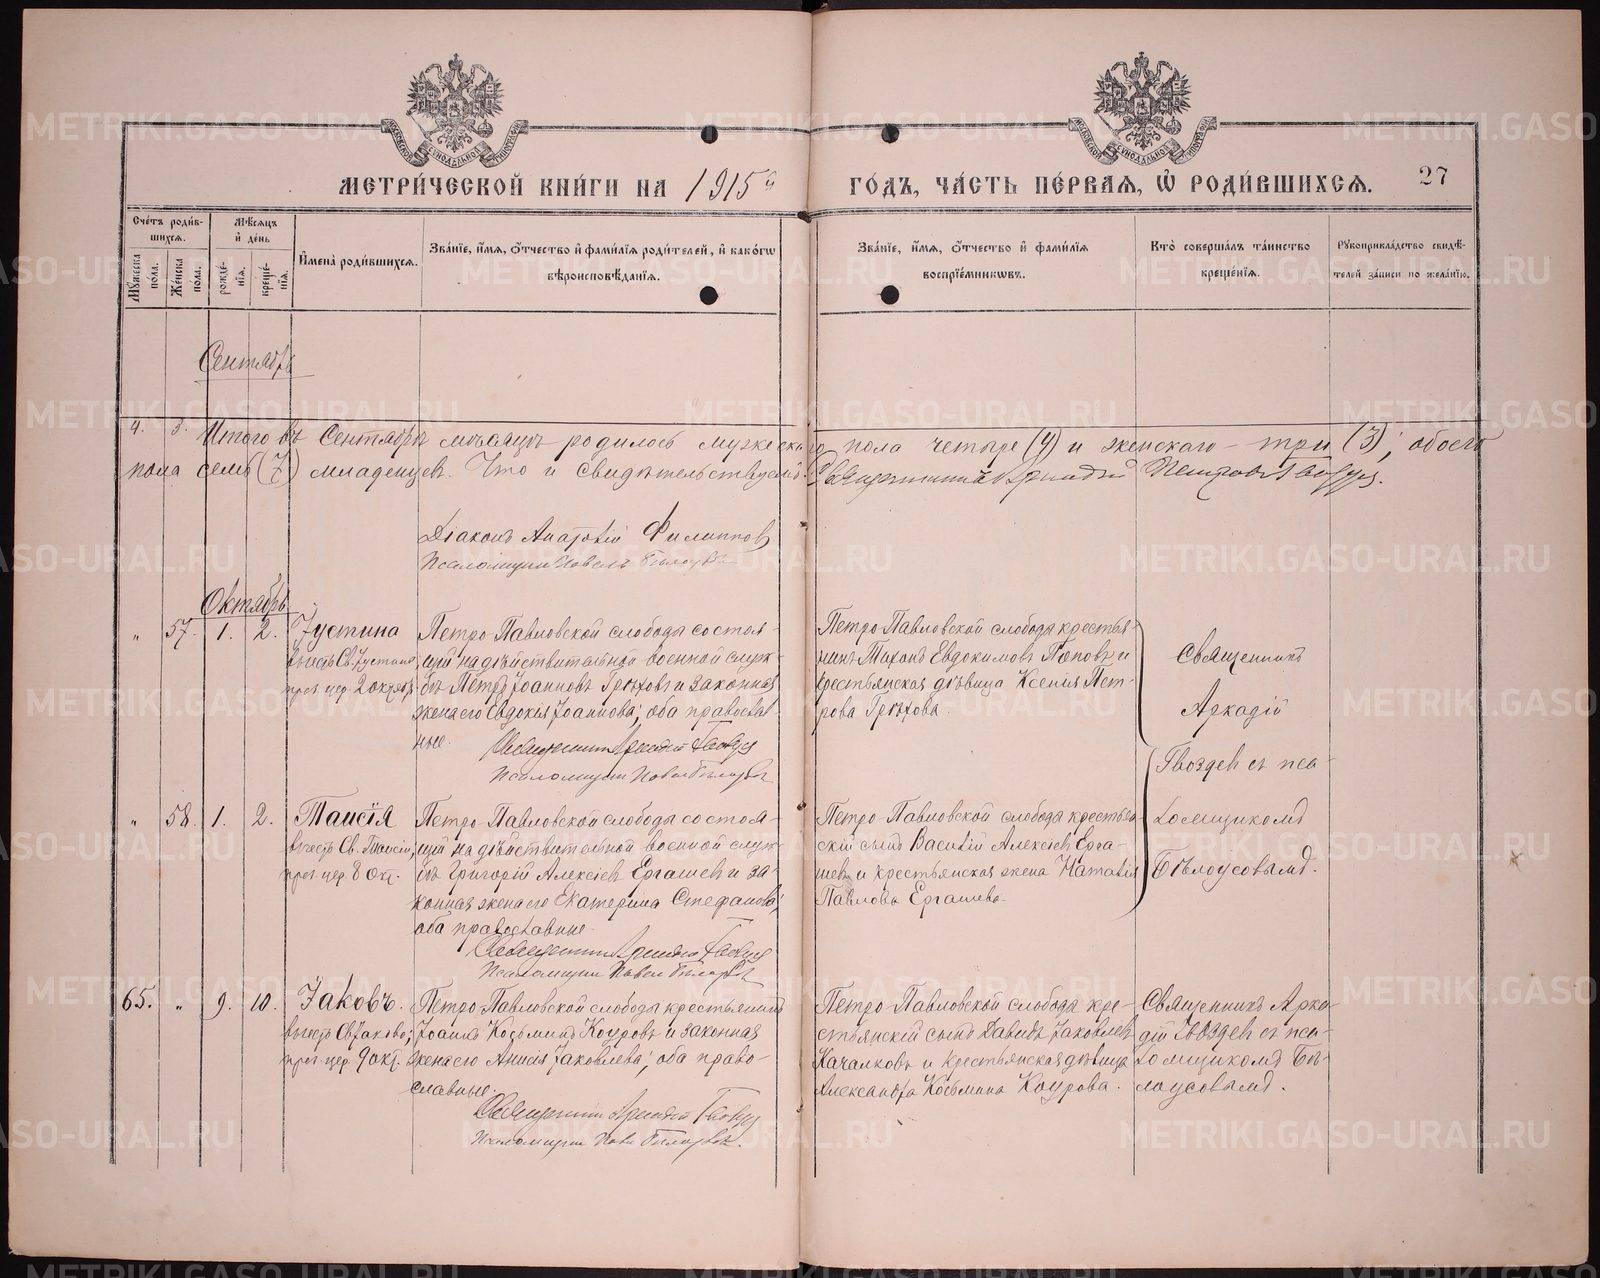 МЕТРИ́ЧЕСКОЙ КНИ́ГИ НА 1915й ГО́ДЪ, ЧА́СТЬ ПЕ́РВАЯ, Ѡ҆ РОДИ́ВШИХСЯ. 27
Сче́тъ роди́в-
шихся.
Мꙋ́жеска по́ла.
Же́нска по́ла.
Мѣ́сяцъ и҆ де́нь
рожде-
нїя.
креще-
нїя.
И҆мена̀ роди́вшихся.
Зва́нїе, и҆́мя, ѻ҆́тчество и҆ фами́лїя роди́телей, и҆ како́гѡ
вѣроисповѣ́данїя.
Зва́нїе, и҆́мя, ѻ҆́тчество и҆ фами́лїя
воспрїе́мникѡвъ.
Кто̀ соверша́лъ та́инство
креще́нїя.
Рꙋкоприкла́дство свидѣ́-
телей за́писи по жела́нїю.
Сентябрь
4. 3. Итого въ Сентябрѣ мѣсяцѣ родилось мужескаго пола четыре (4) и женскаго – три (3); обоего
пола семь (7) младенцев. Что и свидѣтельствуемъ: Священникъ Аркадий Петровъ Гвоздев.
Дiаконъ Анатолій Филиппов
Псаломщикъ Павелъ Бѣлоусовъ
Октябрь
„ 57. 1. 2. Іустина
въ честь Св. Іустины
празд. цер. 2 октяб.
Петро-Павловской слободы состоя-
щий на дѣйствительной военной служ-
бѣ Петръ Іоанновъ Грѣховъ и законная
жена его Евдокія Іоаннова; оба православ-
ные.
Священникъ Аркадій Гвоздев
Псаломщикъ Павелъ Бѣлоусовъ
Петро-Павловской слободы крестья-
нинъ Тихонъ Евдокимовъ Поповъ и
крестьянская дѣвица Ксенія Пет-
рова Грѣхова.
Священникъ
Аркадій
Гвоздев съ пса-
ломщикомъ
Бѣлоусовымъ.
„ 58. 1. 2. Таисія
въ честь Св. Таисіи,
празд. цер. 8 окт.
Петро-Павловской слободы состоя-
щий на дѣйствительной военной служ-
бѣ Григорій Алексіев Ергашев и за-
конная жена его Екатерина Стефанова;
оба православные.
Священникъ Аркадій Гвоздев
Псаломщикъ Павел Бѣлоусовъ
Петро-Павловской слободы крестьян-
скій сынъ Василій Алексіев Ерга-
шев и крестьянская жена Наталія
Павлова Ергашева.
65. „ 9. 10. Іаковъ.
въ честь Св. Іакова;
празд. цер. 9 окт.
Петро-Павловской слободы крестьянинъ
Іоаннъ Косьминъ Коуровъ и законная
жена его Анисія Іаковлева; оба право-
славные.
Священникъ Аркадій Гвоздев
Псаломщикъ Павел Бѣлоусовъ.
Петро-Павловской слободы кре-
стьянскій сынъ Давидъ Іаковлев
Качалковъ и крестьянская дѣвица
Александра Косьмина Коурова.
Священникъ Арка-
дій Гвоздев съ пса-
ломщикомъ Бѣ-
лоусовымъ.
METRIKI.GASO-URAL.RU